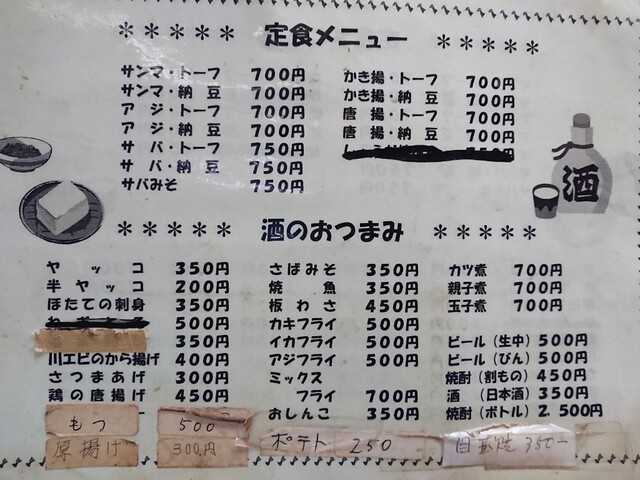 ＊＊＊＊＊ 定食メニュー ＊＊＊＊＊
サンマ・トーフ 700円
サンマ・納豆 700円
アジ・トーフ 700円
アジ・納豆 700円
サバ・トーフ 750円
サバ・納豆 750円
サバみそ 750円
かき揚・トーフ 700円
かき揚・納豆 700円
唐揚・トーフ 700円
唐揚・納豆 700円
750円
酒
＊＊＊＊＊ 酒のおつまみ ＊＊＊＊＊
ヤッコ 350円
半ヤッコ 200円
ほたての刺身 350円
500円
350円
川エビのから揚げ 400円
さつまあげ 300円
鶏の唐揚げ 450円
もつ 500
厚揚げ 300円
さばみそ 350円
焼魚 350円
板わさ 450円
カキフライ 500円
イカフライ 500円
アジフライ 500円
ミックス
フライ 700円
おしんこ 350円
ポテト 250
カツ煮 700円
親子煮 700円
玉子煮 700円
ビール（生中）500円
ビール（びん）500円
焼酎（割もの）450円
酒（日本酒）350円
焼酎（ボトル）2.500円
目玉焼 350-